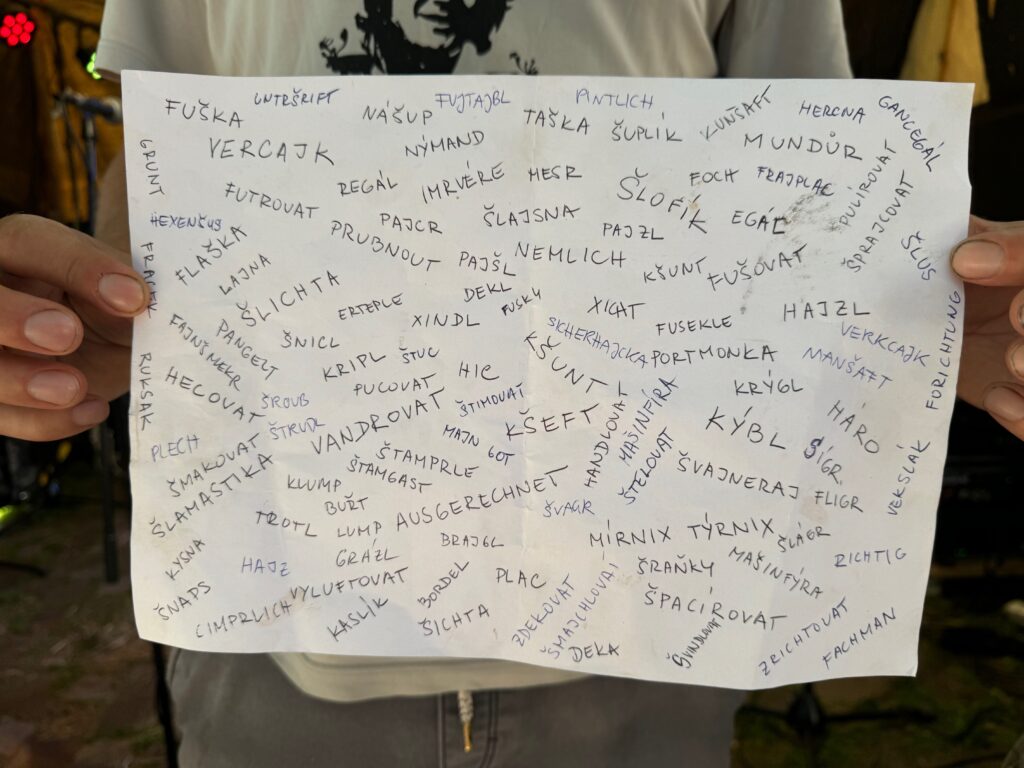 FUŠKA
UNTRŠRIFT
NÁŠUP
FUJTAJBL
PINTLICH
TAŠKA
ŠUPLÍK
KUNŠAFT
HERCNA
GANCEGÁL
GRUNT
VERCAJK
NÝMAND
MUNDŮR
FUTROVAT
REGÁL
IMRVÉRE
MESR
ŠLOFÍK
FOCH
FRAJPLAC
PULÍROVAT
ŠPRAJCOVAT
HEXENŠUS
FLAŠKA
PRUBNOUT
PAJCR
ŠLAJSNA
PAJZL
EGÁL
ŠLUS
FRACEK
LAJNA
PAJŠL
NEMLICH
KŠUNT
FUŠOVAT
ŠLICHTA
ERTEPLE
DEKL
FUSKY
XICHT
HAJZL
FAJNŠMEKR
PANGELT
ŠNICL
XINDL
SICHERHAJCKA
FUSEKLE
VERKCAJK
FORICHTUNG
RUKSAK
HECOVAT
KRIPL
ŠTUC
KŠUNT
PORTMONKA
MANŠAFT
ŠROUB
PUCOVAT
HIC
KRÝGL
PLECH
ŠTRUDL
VANDROVAT
ŠTIMOVAT
KŠEFT
HANDLOVAT
MAŠINFÍRA
KÝBL
HÁRO
ŠMAKOVAT
MAJN GOT
ŠTELOVAT
ŠÍGR
VEKSLÁK
ŠLAMASTIKA
ŠTAMPRLE
ŠTAMGAST
KLUMP
ŠVAJNERAJ
FLIGR
TROTL
BUŘT
LUMP
AUSGERECHNET
ŠVAGR
KYSNA
GRÁZL
BRAJGL
MÍRNIX TÝRNIX
ŠLÁGR
HAJZ
ŠRAŇKY
MAŠINFÝRA
RICHTIG
ŠNAPS
VYLUFTOVAT
BORDEL
PLAC
CIMPRLICH
KASLÍK
ŠICHTA
ZDEKOVAT
ŠMAJCHLOVAT
ŠPACÍROVAT
DEKA
ŠVINDLOVAT
ZRICHTOVAT
FACHMAN